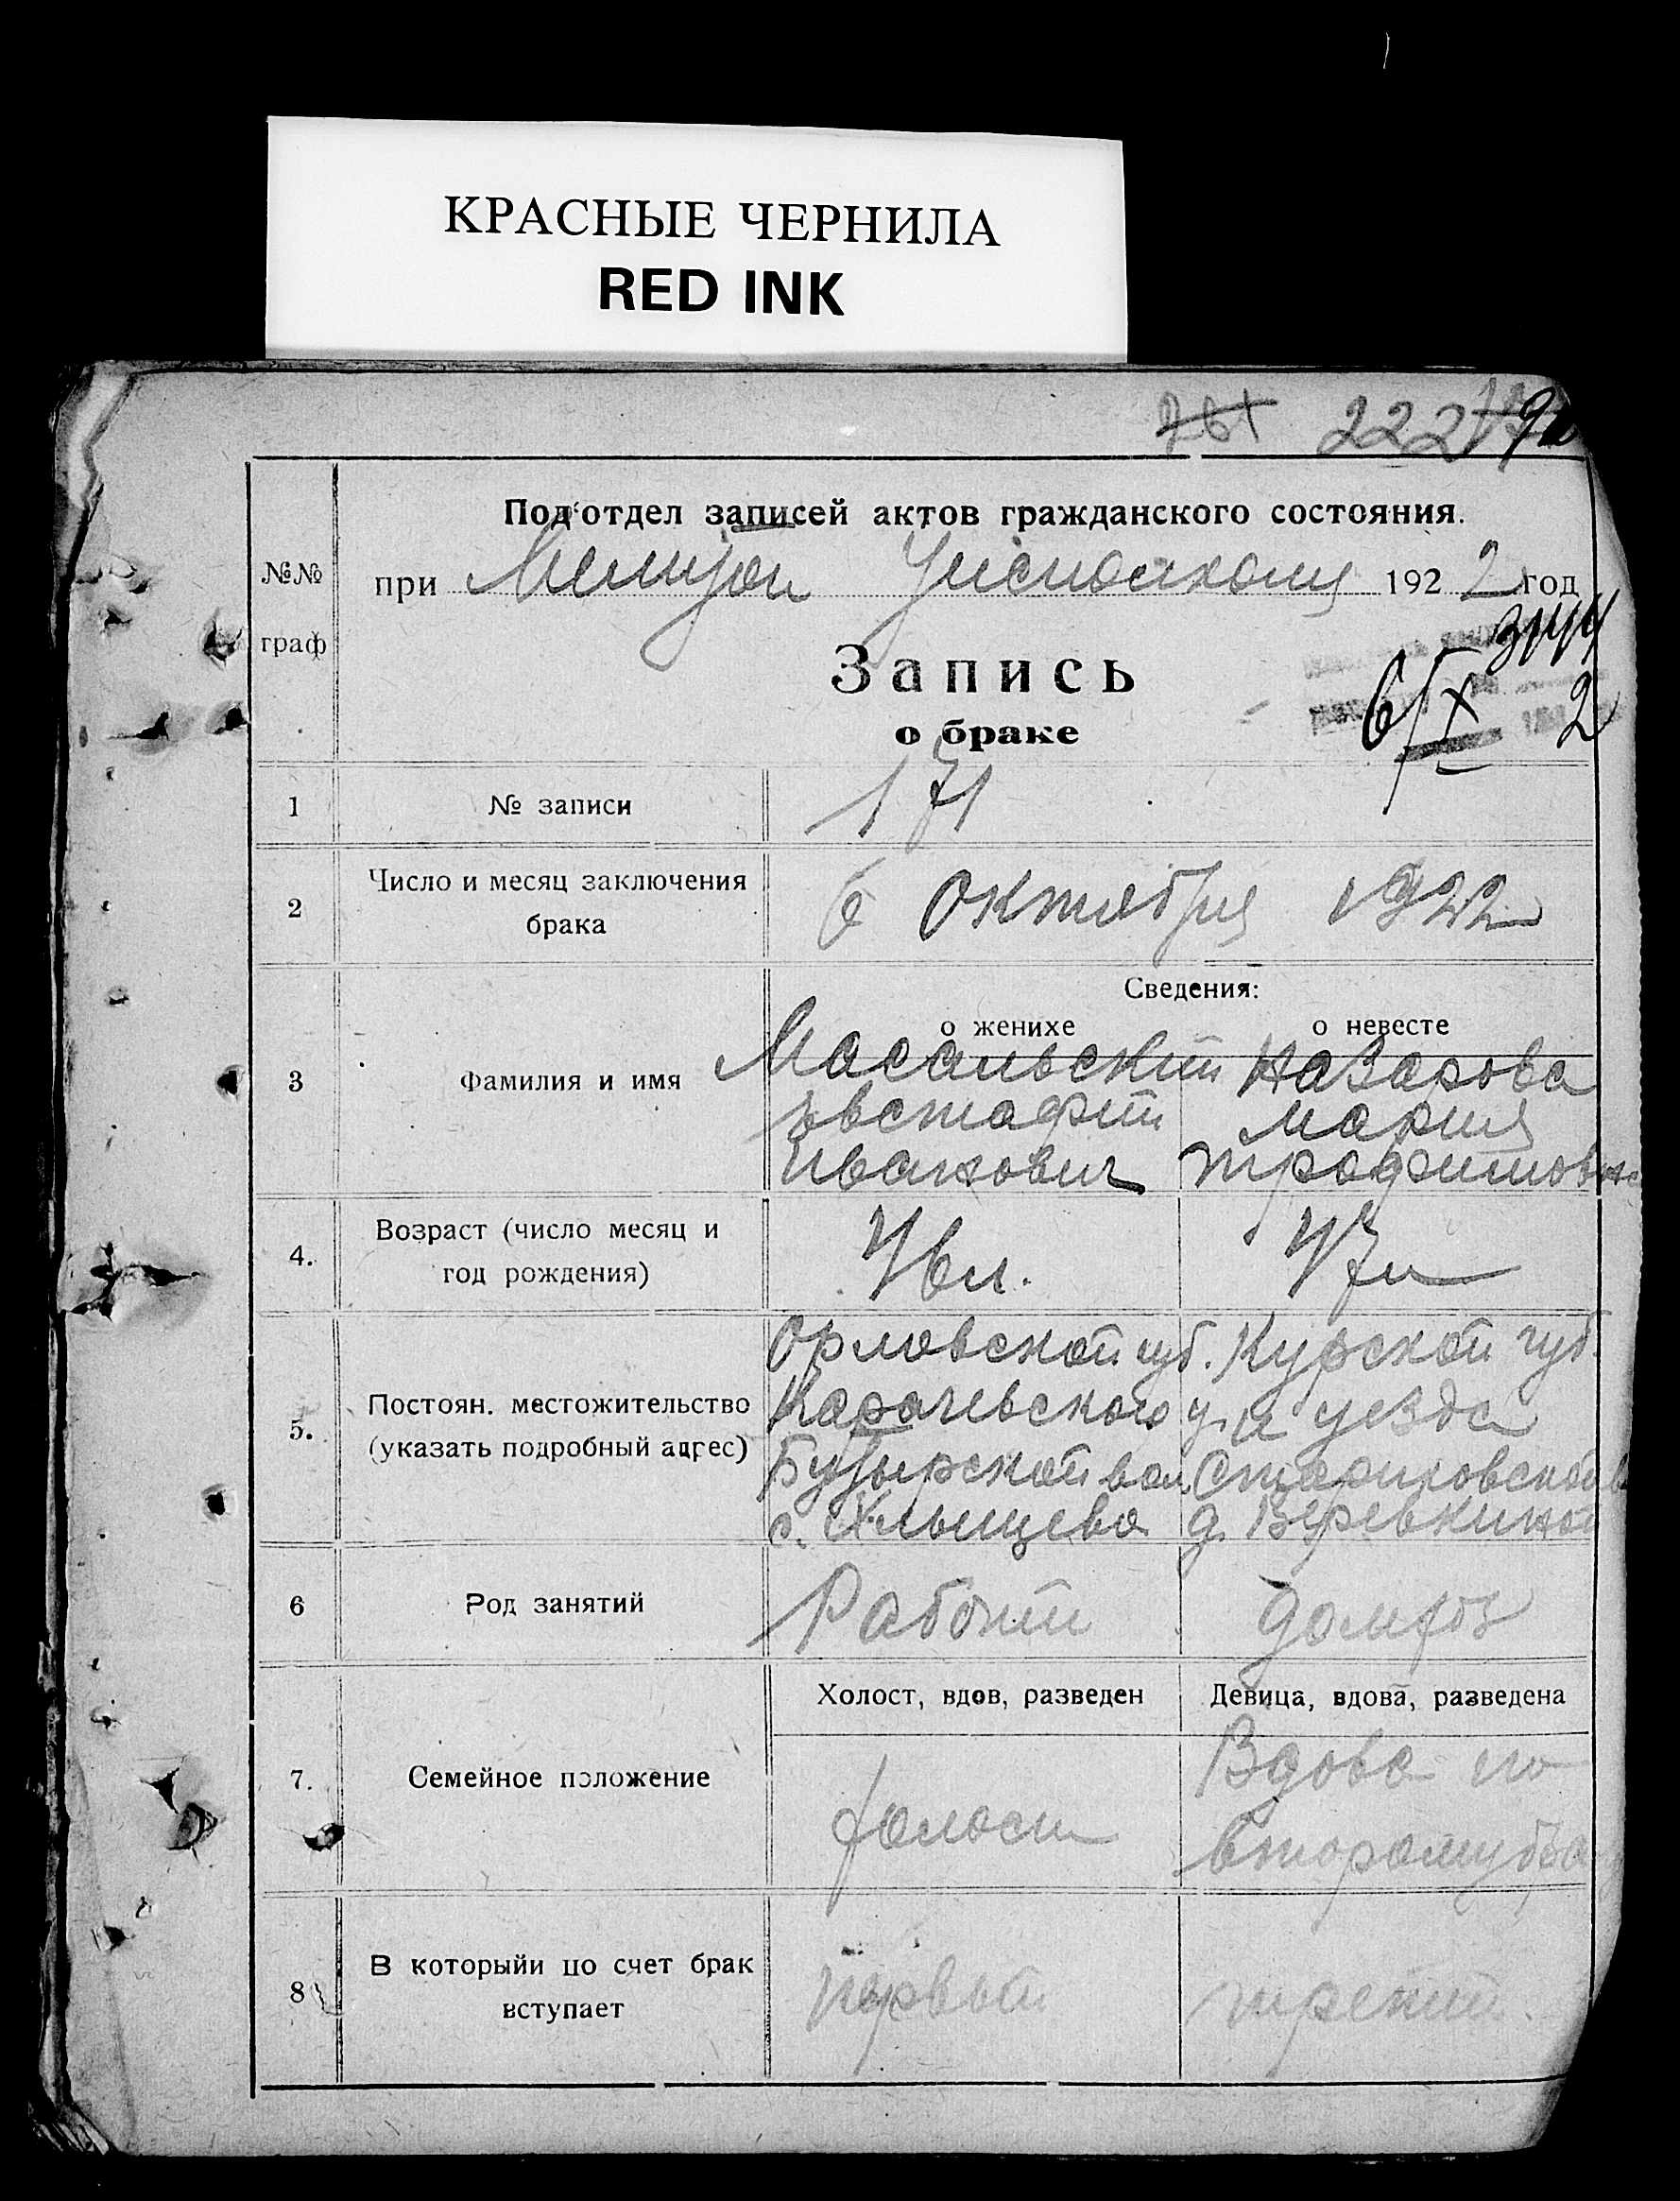 КРАСНЫЕ ЧЕРНИЛА
RED INK
761 222
Под‘отдел записей актов гражданского состояния.
№№ граф
при Мелитоп Уисполкому 1922 год
3144
Запись
о браке
6/X 2
1 № записи 171
2 Число и месяц заключения брака 6 Октября 1922
Сведения:
о женихе о невесте
3 Фамилия и имя
Масальский Назарова
Евстафий Мария
Иванович Трофимовна
4. Возраст (число месяц и год рождения) 46 л. 47 л
5. Постоян. местожительство (указать подробный адрес)
Орловской губ. Курской губ.
Карачевского у. и уезда
Бутырской вол. Стариковской в
с. Хлыщево д. Веревкиной
6 Род занятий Рабочий домхоз
Холост, вдов, разведен Девица, вдова, разведена
7. Семейное положение
холост Вдова по
второму бра
8 В которыйи по счет брак вступает первый третий.